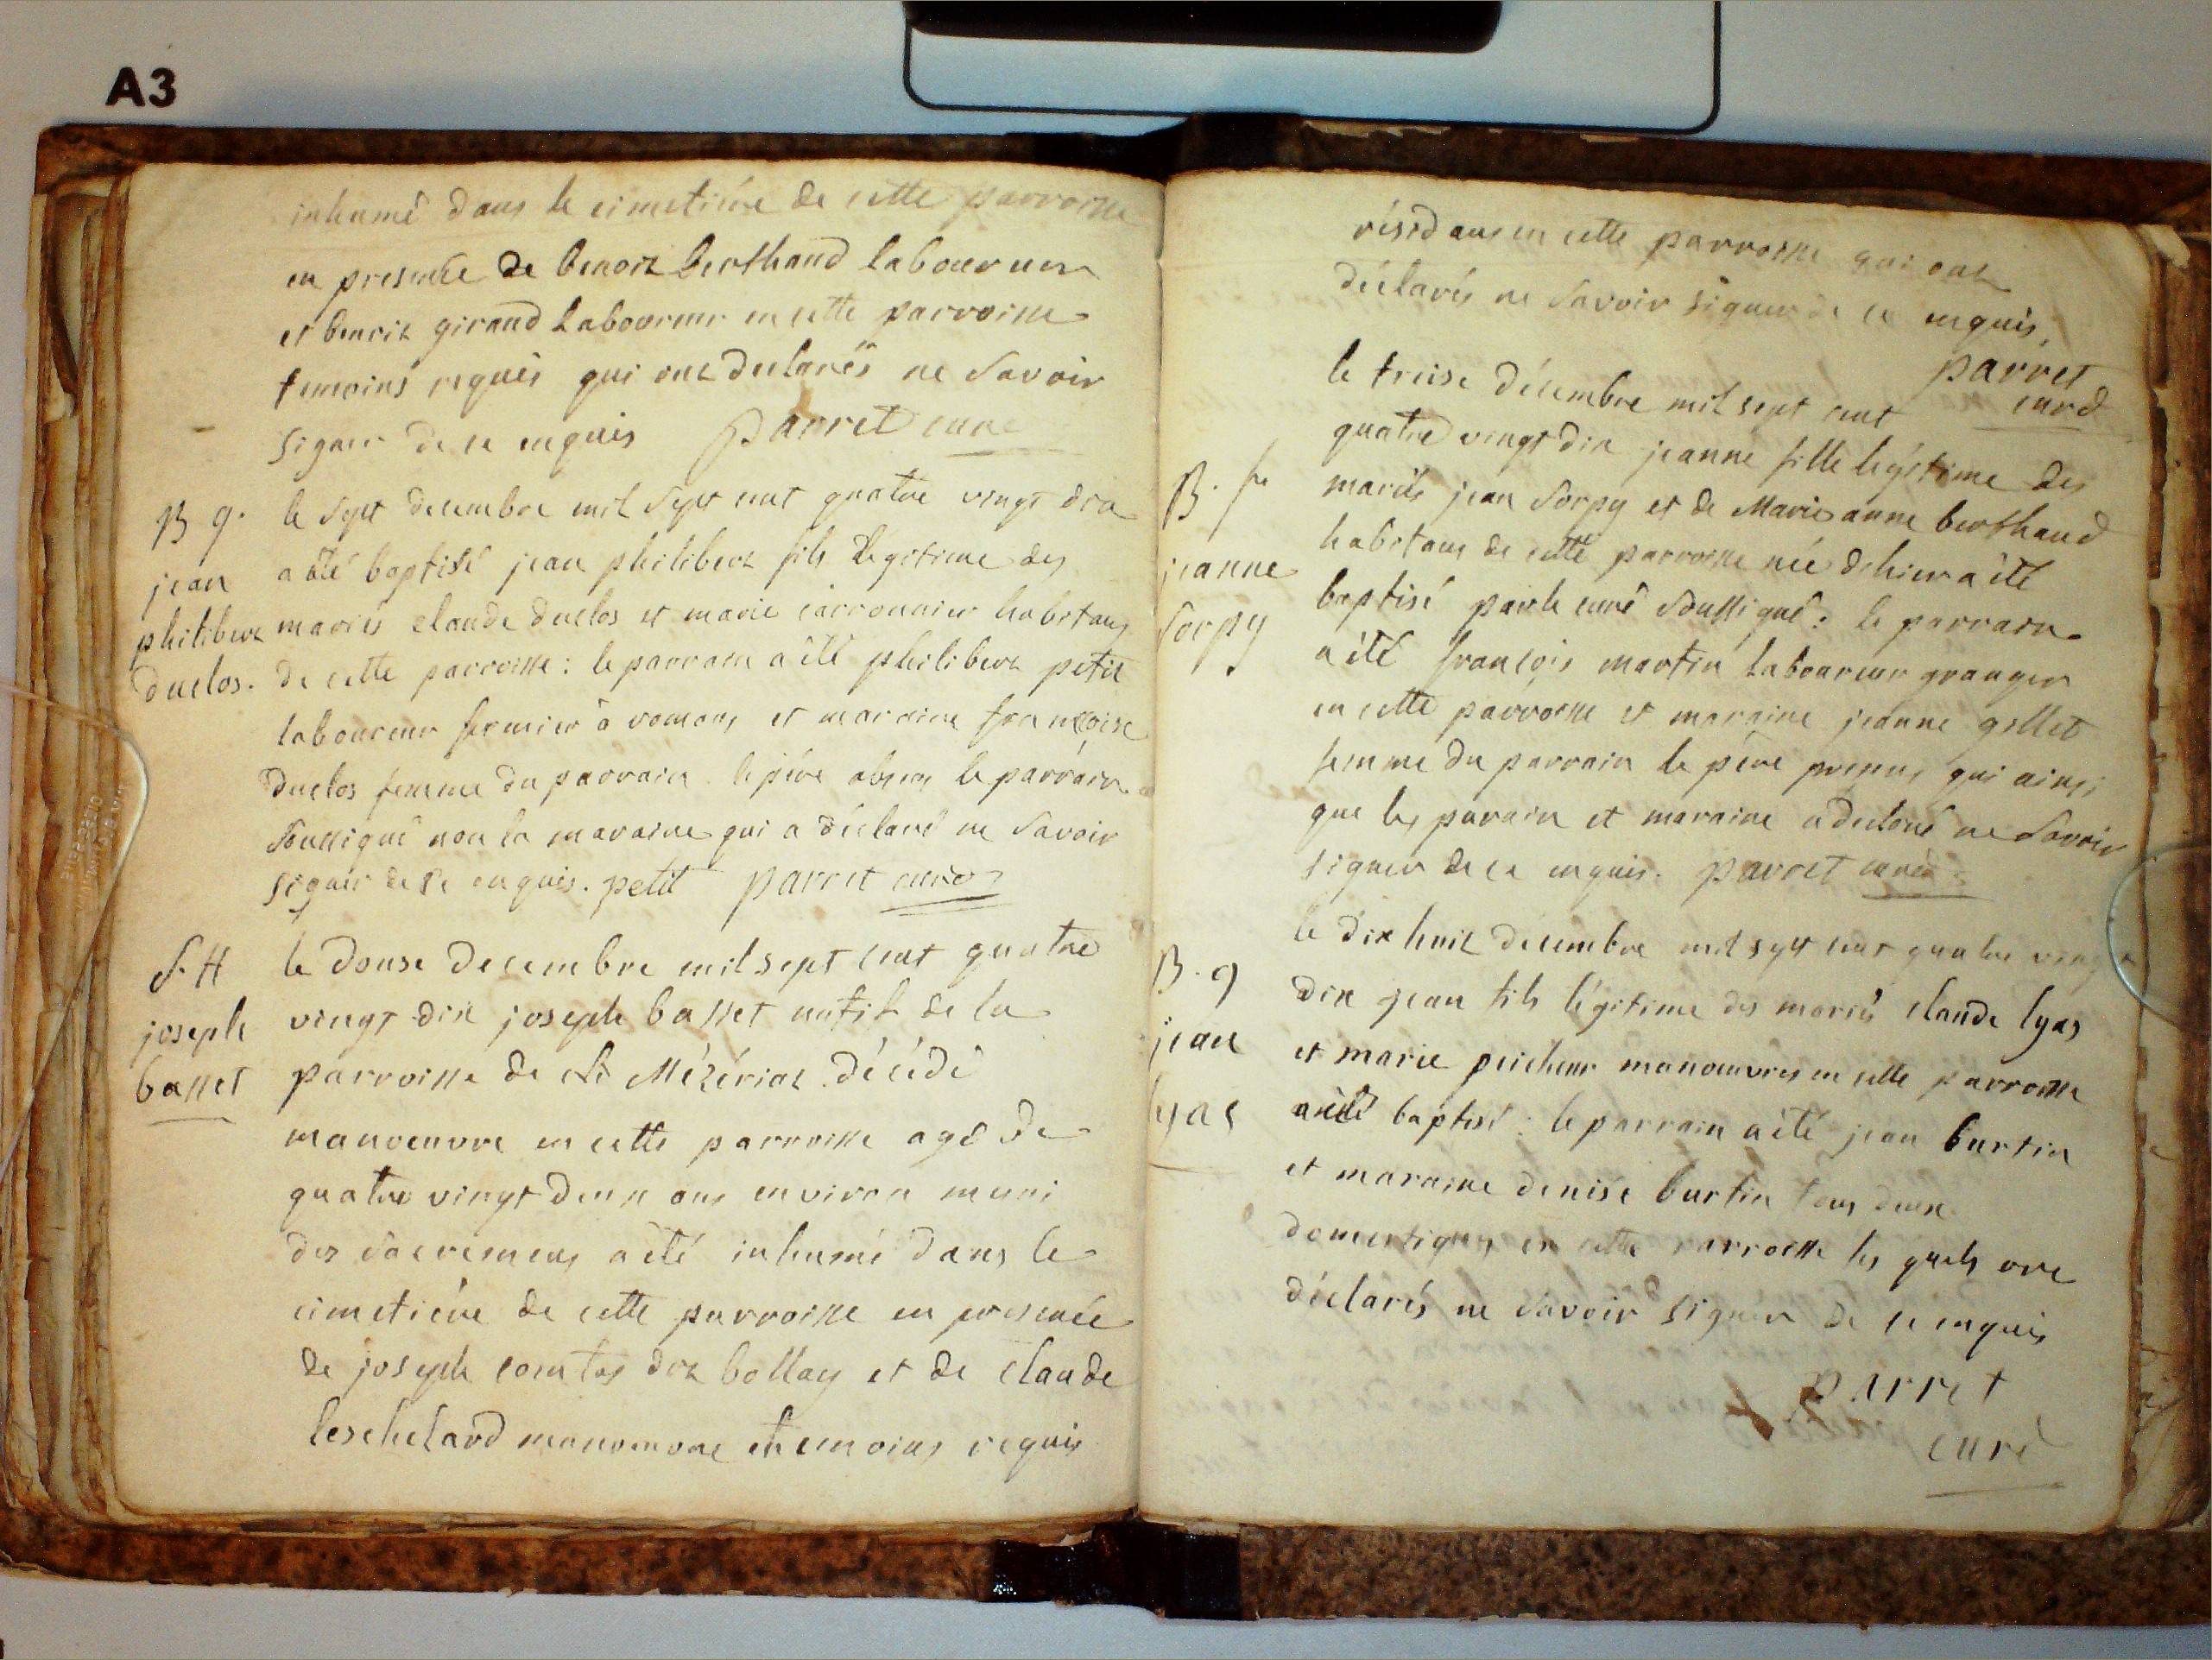 A3
inhumé dans le cimetiére de cette parroisse
en presence de benoit berthaud laboureur
et benoit giraud laboureur en cette parroisse
temoins requis qui ont declarés ne Savoir
signer de ce enquis parret curé
B g.
jean
philibert
duclos.
le Sept decembre mil Sept cent quatre vingt dix
a été baptisé jean philibert fils legitime des
mariés claude duclos et marie carronnier habitans
de cette parroisse : le parrain a été philibert petit
laboureur fermier à romans et maraine francoise
Duclos femme du parrain le pére absent le parrain
Soussigné non la maraine qui a déclaré ne Savoir
signer de ce enquis. petit parret curé
S. H
joseph
basset
le douse decembre mil sept cent quatre
vingt dix joseph basset natif de la
parroisse de St Mézériat décédé
manoeuvre en cette parroisse agé de
quatre vingt deux ans environ muni
des Sacremens a été inhumé dans le
cimetiére de cette parroisse en presence
de joseph comtet dit bollay et de claude
leschelard manoeuvre temoins requis
résidans en cette parroisse qui ont
déclarés ne Savoir signer de ce enquis
parret
curé
B. f
jeanne
Sorpy
le treise décembre mil sept cent
quatre vingt dix jeanne fille légitime des
mariés jean Sorpy et de Marie anne berthaud
habitans de cette parroisse née dehier a été
baptisé par le curé Soussigné : le parrain
a été françois martin laboureur granger
en cette parroisse et maraine jeanne gillet
femme du parrain le pére present qui ainsi
que les parain et maraine a declaré ne Savoir
signer de ce enquis. parret curé
B. g
jean
lyas
le dix huit décembre mil sept cent quatre vingt
dix jean fils légitime des mariés claude lyas
et marie pricheur manoeuvres en cette parroisse
a été baptisé : le parrain a été jean burtin
et maraine denise burtin tous deux
domestiques en cette parroisse les quels ont
déclarés ne Savoir signer de ce enquis
parret
curé